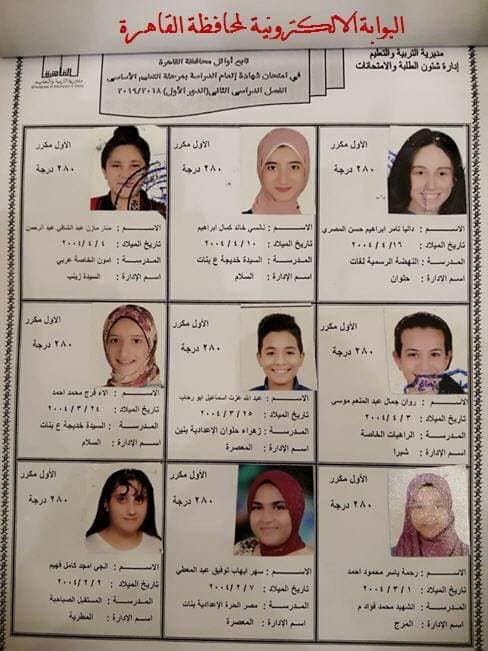 البوابة الالكترونية لمحافظة القاهرة
مديرية التربية والتعليم
إدارة شئون الطلبة والامتحانات
تابع أوائل محافظة القاهرة
في امتحان شهادة إتمام الدراسة بمرحلة التعليم الأساسي
الفصل الدراسي الثاني (الدور الأول) ٢٠١٩/٢٠١٨
القاهرة
الأول مكرر
٢٨٠ درجة
الاســـم : داليا تامر ابراهيم حسن المصري
تاريخ الميلاد : ٢٠٠٤/٤/١٦
المدرسة : النهضة الرسمية لغات
اسم الإدارة : حلوان
الأول مكرر
٢٨٠ درجة
الاســـم : نانسي خالد كمال ابراهيم
تاريخ الميلاد : ٢٠٠٤/٤/١٠
المدرسة : السيدة خديجة ع بنات
اسم الإدارة : السلام
الأول مكرر
٢٨٠ درجة
الاســـم : منار مازن عبد الشافي عبد الرحمن
تاريخ الميلاد : ٢٠٠٤/٤/٤
المدرسة : امون الخاصة عربي
اسم الإدارة : السيدة زينب
الأول مكرر
٢٨٠ درجة
الاســـم : روان جمال عبد المنعم موسي
تاريخ الميلاد : ٢٠٠٤/٤/٣
المدرسة : الراهبات الخاصة
اسم الإدارة : شبرا
الأول مكرر
٢٨٠ درجة
الاســـم : عبد الله عزت اسماعيل ابو رحاب
تاريخ الميلاد : ٢٠٠٤/٣/٢٥
المدرسة : زهراء حلوان الإعدادية بنين
اسم الإدارة : المعصرة
الأول مكرر
٢٨٠ درجة
الاســـم : الاء فرج محمد احمد
تاريخ الميلاد : ٢٠٠٤/٣/٢٤
المدرسة : السيدة خديجة ع بنات
اسم الإدارة : السلام
الأول مكرر
٢٨٠ درجة
الاســـم : رحمة ياسر محمود احمد
تاريخ الميلاد : ٢٠٠٤/٣/١
المدرسة : الشهيد محمد فوائد م
اسم الإدارة : المرج
الأول مكرر
٢٨٠ درجة
الاســـم : سهر ايهاب توفيق عبد المعطي
تاريخ الميلاد : ٢٠٠٤/٢/٧
المدرسة : مصر الحرة الإعدادية بنات
اسم الإدارة : المعصرة
الأول مكرر
٢٨٠ درجة
الاســـم : انجي امجد كامل فهيم
تاريخ الميلاد : ٢٠٠٤/٢/٢
المدرسة : المستقبل الصباحية
اسم الإدارة : المطرية